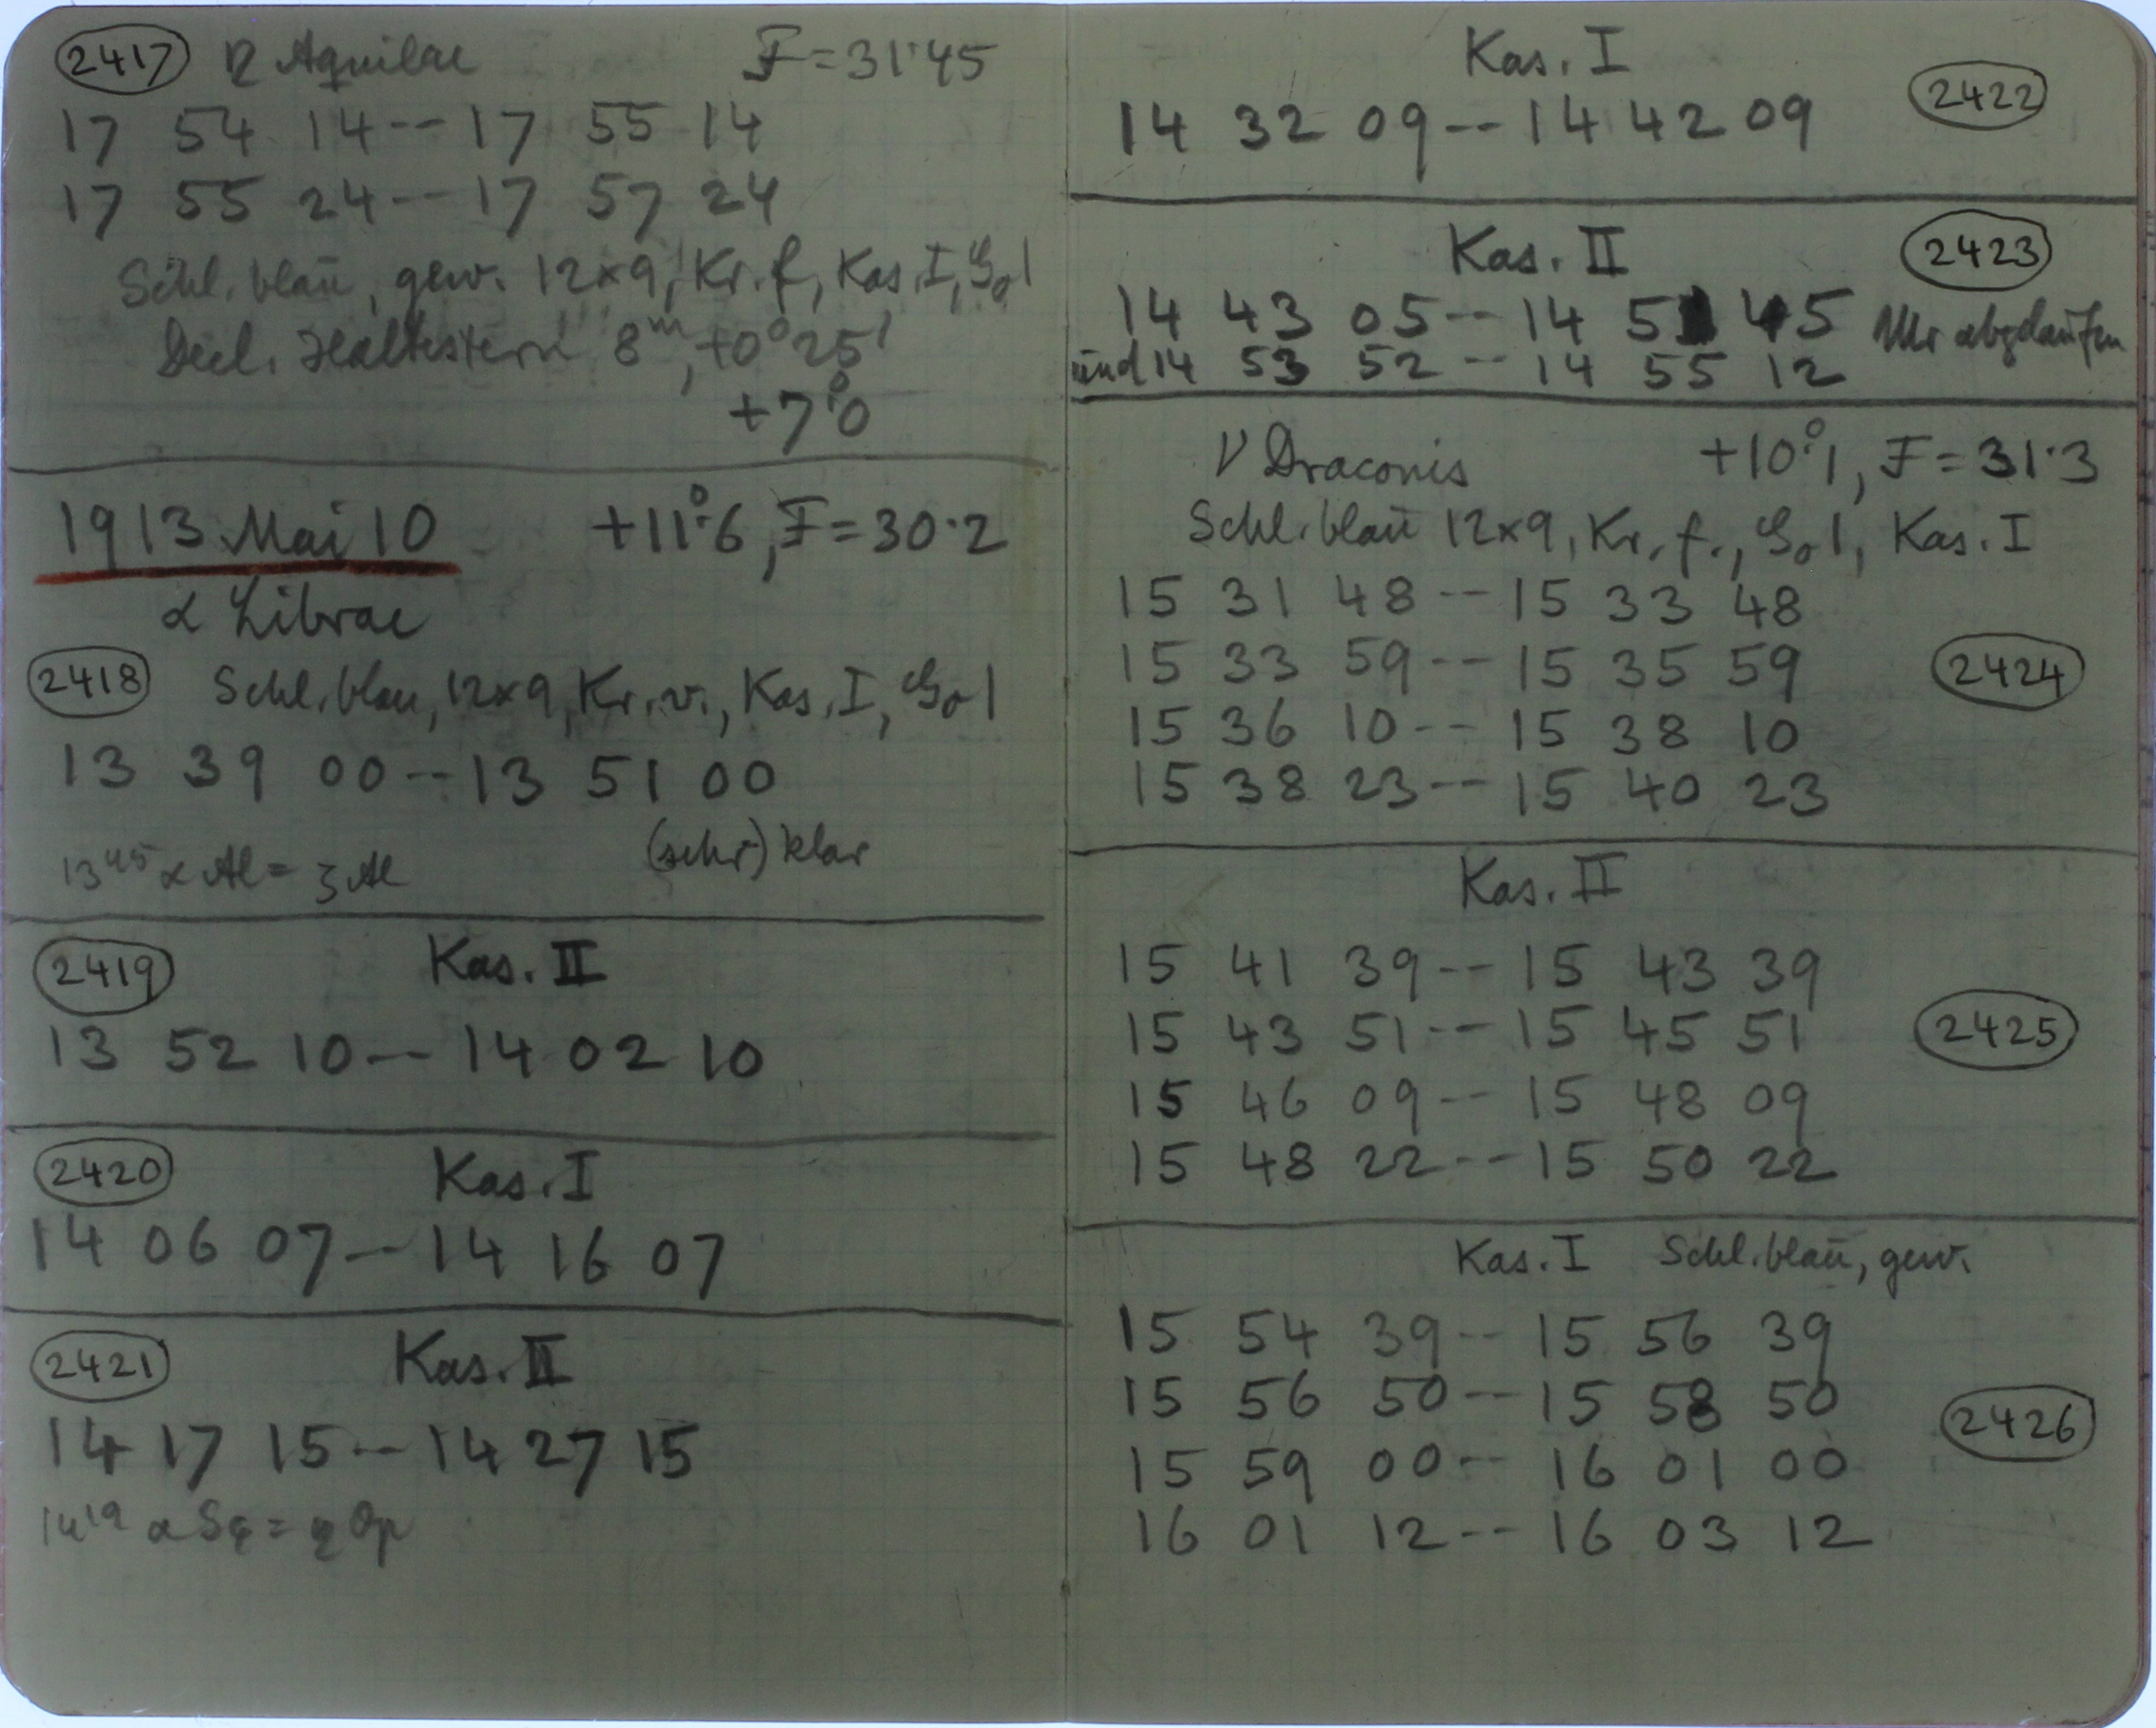 2417 η Aquilae F=31.45
17 54 14--17 55 14
17 55 24--17 57 24
Schl. blau, gew. 12×9, Kr. f, Kas. I, 1
Decl. Haltestern 8m, +0° 25'
+7.°0
1913 Mai 10 +11.°6, F=30.2
α Librae
2418 Schl. blau, 12×9, Kr. v., Kas. I, 1
13 39 00--13 51 00
13 45 α Al = ζ Al (sehr) klar
2419 Kas. II
13 52 10--14 02 10
2420 Kas. I
14 06 07--14 16 07
2421 Kas. II
14 17 15--14 27 15
14 19 α = η Op
Kas. I 2422
14 32 09--14 42 09
Kas. II 2423
14 43 05--14 51 45 Uhr abgelaufen
und 14 53 52--14 55 12
ν Draconis +10.°1, F=31.3
Schl. blau 12×9, Kr. f., 1, Kas. I
15 31 48--15 33 48
15 33 59--15 35 59 2424
15 36 10--15 38 10
15 38 23--15 40 23
Kas. II
15 41 39--15 43 39
15 43 51--15 45 51 2425
15 46 09--15 48 09
15 48 22--15 50 22
Kas. I Schl. blau, gew.
15 54 39--15 56 39
15 56 50--15 58 50 2426
15 59 00--16 01 00
16 01 12--16 03 12